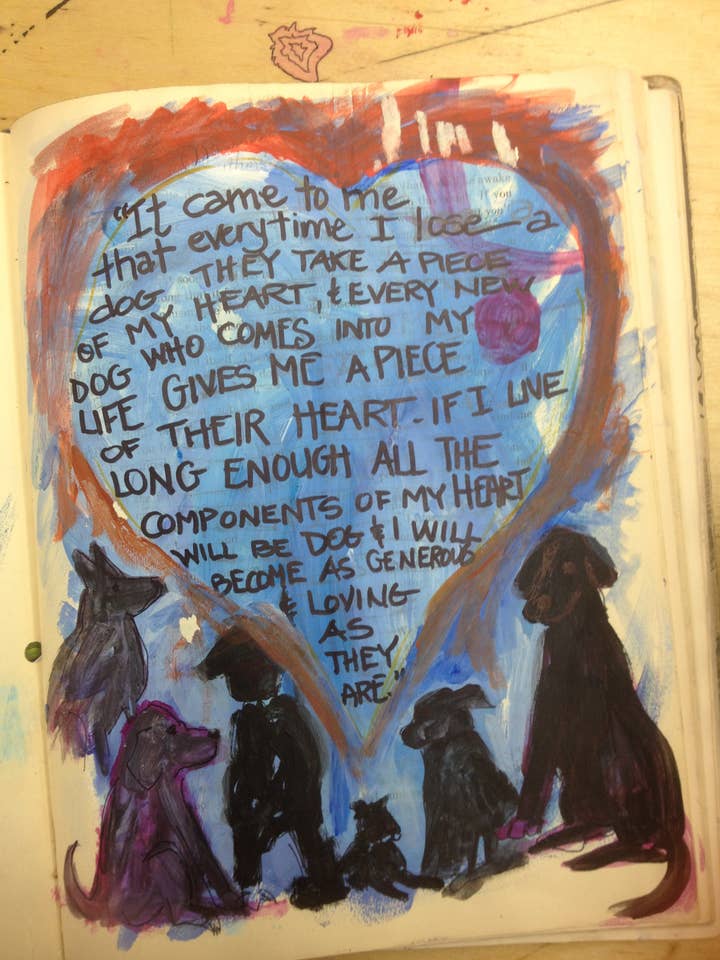 "It came to me
that everytime I lose a
dog THEY TAKE A PIECE
OF MY HEART, & EVERY NEW
DOG WHO COMES INTO MY
LIFE GIVES ME A PIECE
OF THEIR HEART. IF I LIVE
LONG ENOUGH ALL THE
COMPONENTS OF MY HEART
WILL BE DOG & I WILL
BECOME AS GENEROUS
& LOVING
AS
THEY
ARE."